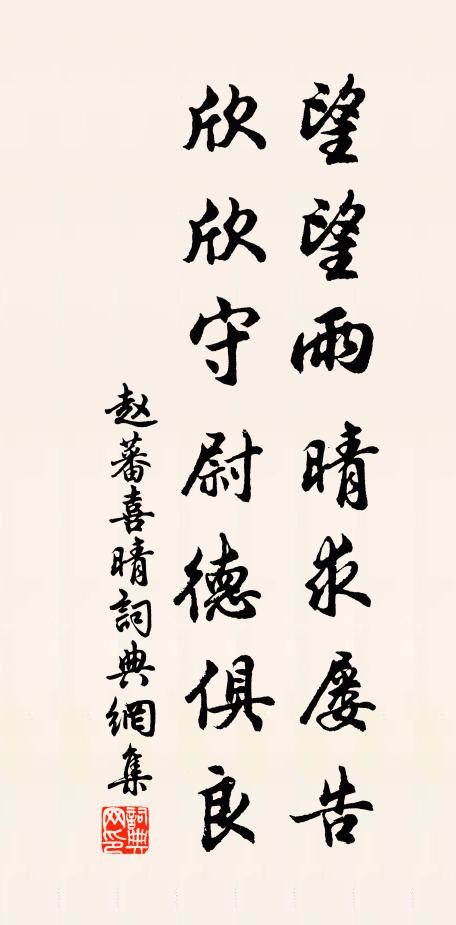 望望雨晴求屡告
欣欣守尉德俱良
赵蕃喜晴詞典網集
詞典網印